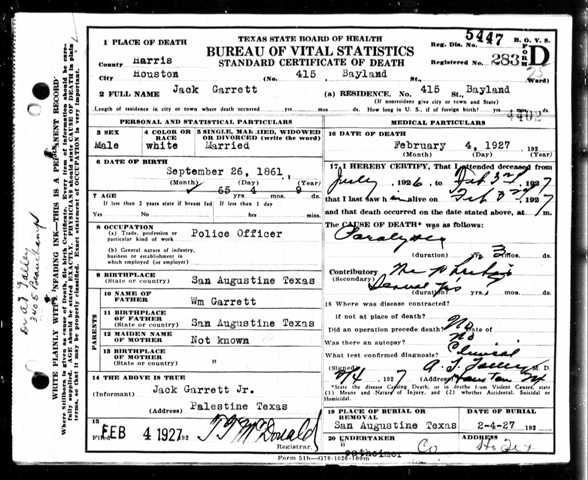 TEXAS STATE BOARD OF HEALTH
BUREAU OF VITAL STATISTICS
STANDARD CERTIFICATE OF DEATH
5447
B. O. V. S.
FORM D
Reg. Dis. No.
Registered No. 283
25
1 PLACE OF DEATH
County Harris
City Houston (No. 415 Bayland St. Ward)
2 FULL NAME Jack Garrett (a) RESIDENCE. No. 415 Bayland St.
(If nonresident give city or town and State)
Length of residence in city or town where death occurred yrs. mos. ds. How long in U. S., if of foreign birth? yrs. mos. ds.
4402
PERSONAL AND STATISTICAL PARTICULARS
3 SEX
Male
4 COLOR OR RACE
white
5 SINGLE, MARRIED, WIDOWED OR DIVORCED (write the word)
Married
6 DATE OF BIRTH
September 26, 1861
(Month) (Day) (Year)
7 AGE
65 4 9
If less than 2 years state if breast fed Yes No
If less than 1 day
8 OCCUPATION
(a) Trade, profession or particular kind of work
Police Officer
(b) General nature of industry, business or establishment in which employed (or employer)
9 BIRTHPLACE
(State or country)
San Augustine Texas
PARENTS
10 NAME OF FATHER
Wm Garrett
11 BIRTHPLACE OF FATHER
(State or country)
San Augustine Texas
12 MAIDEN NAME OF MOTHER
Not known
13 BIRTHPLACE OF MOTHER
(State or country)
"
14 THE ABOVE IS TRUE
(Informant) Jack Garrett Jr.
(Address) Palestine Texas
15
Filed FEB 4 1927 T F McDonald
Registrar
MEDICAL PARTICULARS
16 DATE OF DEATH
February 4, 1927 192
(Month) (Day) (Year)
17 I HEREBY CERTIFY, That I attended deceased from
July 1926, to Feb 3rd 1927
that I last saw h alive on Feb 3rd 1927
and that death occurred on the date stated above, at m.
The CAUSE OF DEATH* was as follows:
Paralysis
(duration) yrs. 3 mos. ds.
Contributory
(Secondary)
Several yrs (duration) yrs. mos. ds.
18 Where was disease contracted?
if not at place of death?
Did an operation precede death? No Date of
Was there an autopsy? No
What test confirmed diagnosis? Clinical
(Signed) M. D.
2/4 1927 (Address) Houston Tx
*State the disease Causing Death, or in deaths from Violent Causes, state (1) Means and Nature of Injury, and (2) whether Accidental, Suicidal or Homicidal.
19 PLACE OF BURIAL OR REMOVAL
San Augustine Texas
DATE OF BURIAL
2-4-27 192
20 UNDERTAKER
Co.
ADDRESS
WRITE PLAINLY WITH UNFADING INK—THIS IS A PERMANENT RECORD